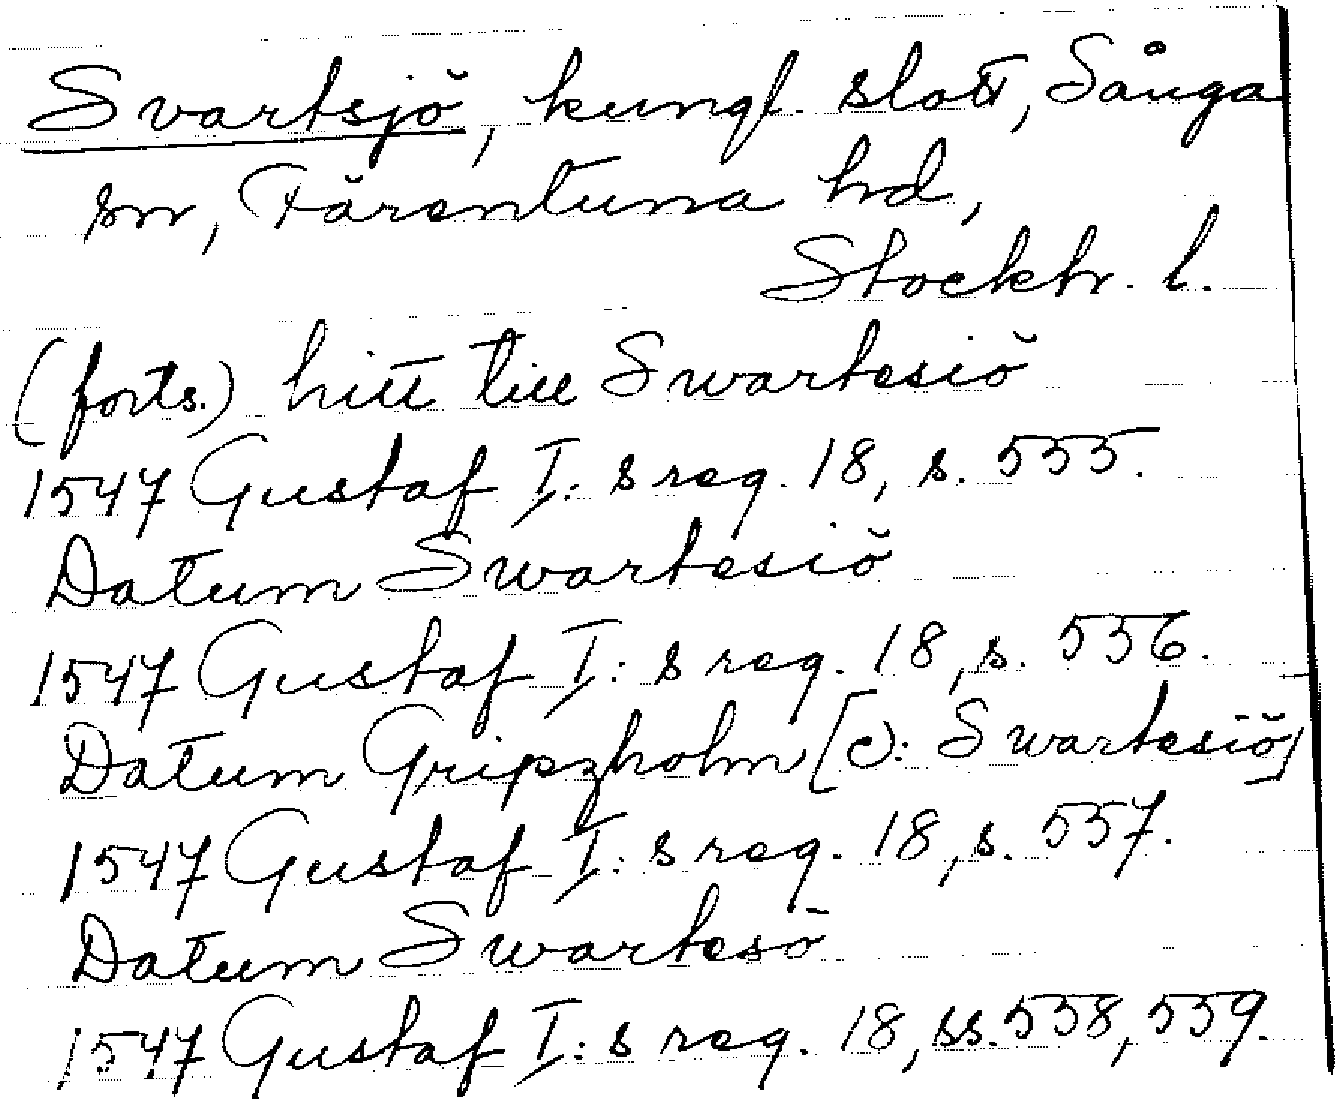 Svartsjö, kungl. slott, Sånga
sn, Färentuna hd,
Stockh. l.
(forts.) hitt till Swartesiö
1547 Gustaf I:s reg. 18, s. 555.
Datum Swartesiö
1547 Gustaf I:s reg. 18, s. 556.
Datum Gripzholm [ɔ: Swartesiö]
1547 Gustaf I:s reg. 18, s. 557.
Datum Swartesö
1547 Gustaf I:s reg. 18, ss. 558, 559.